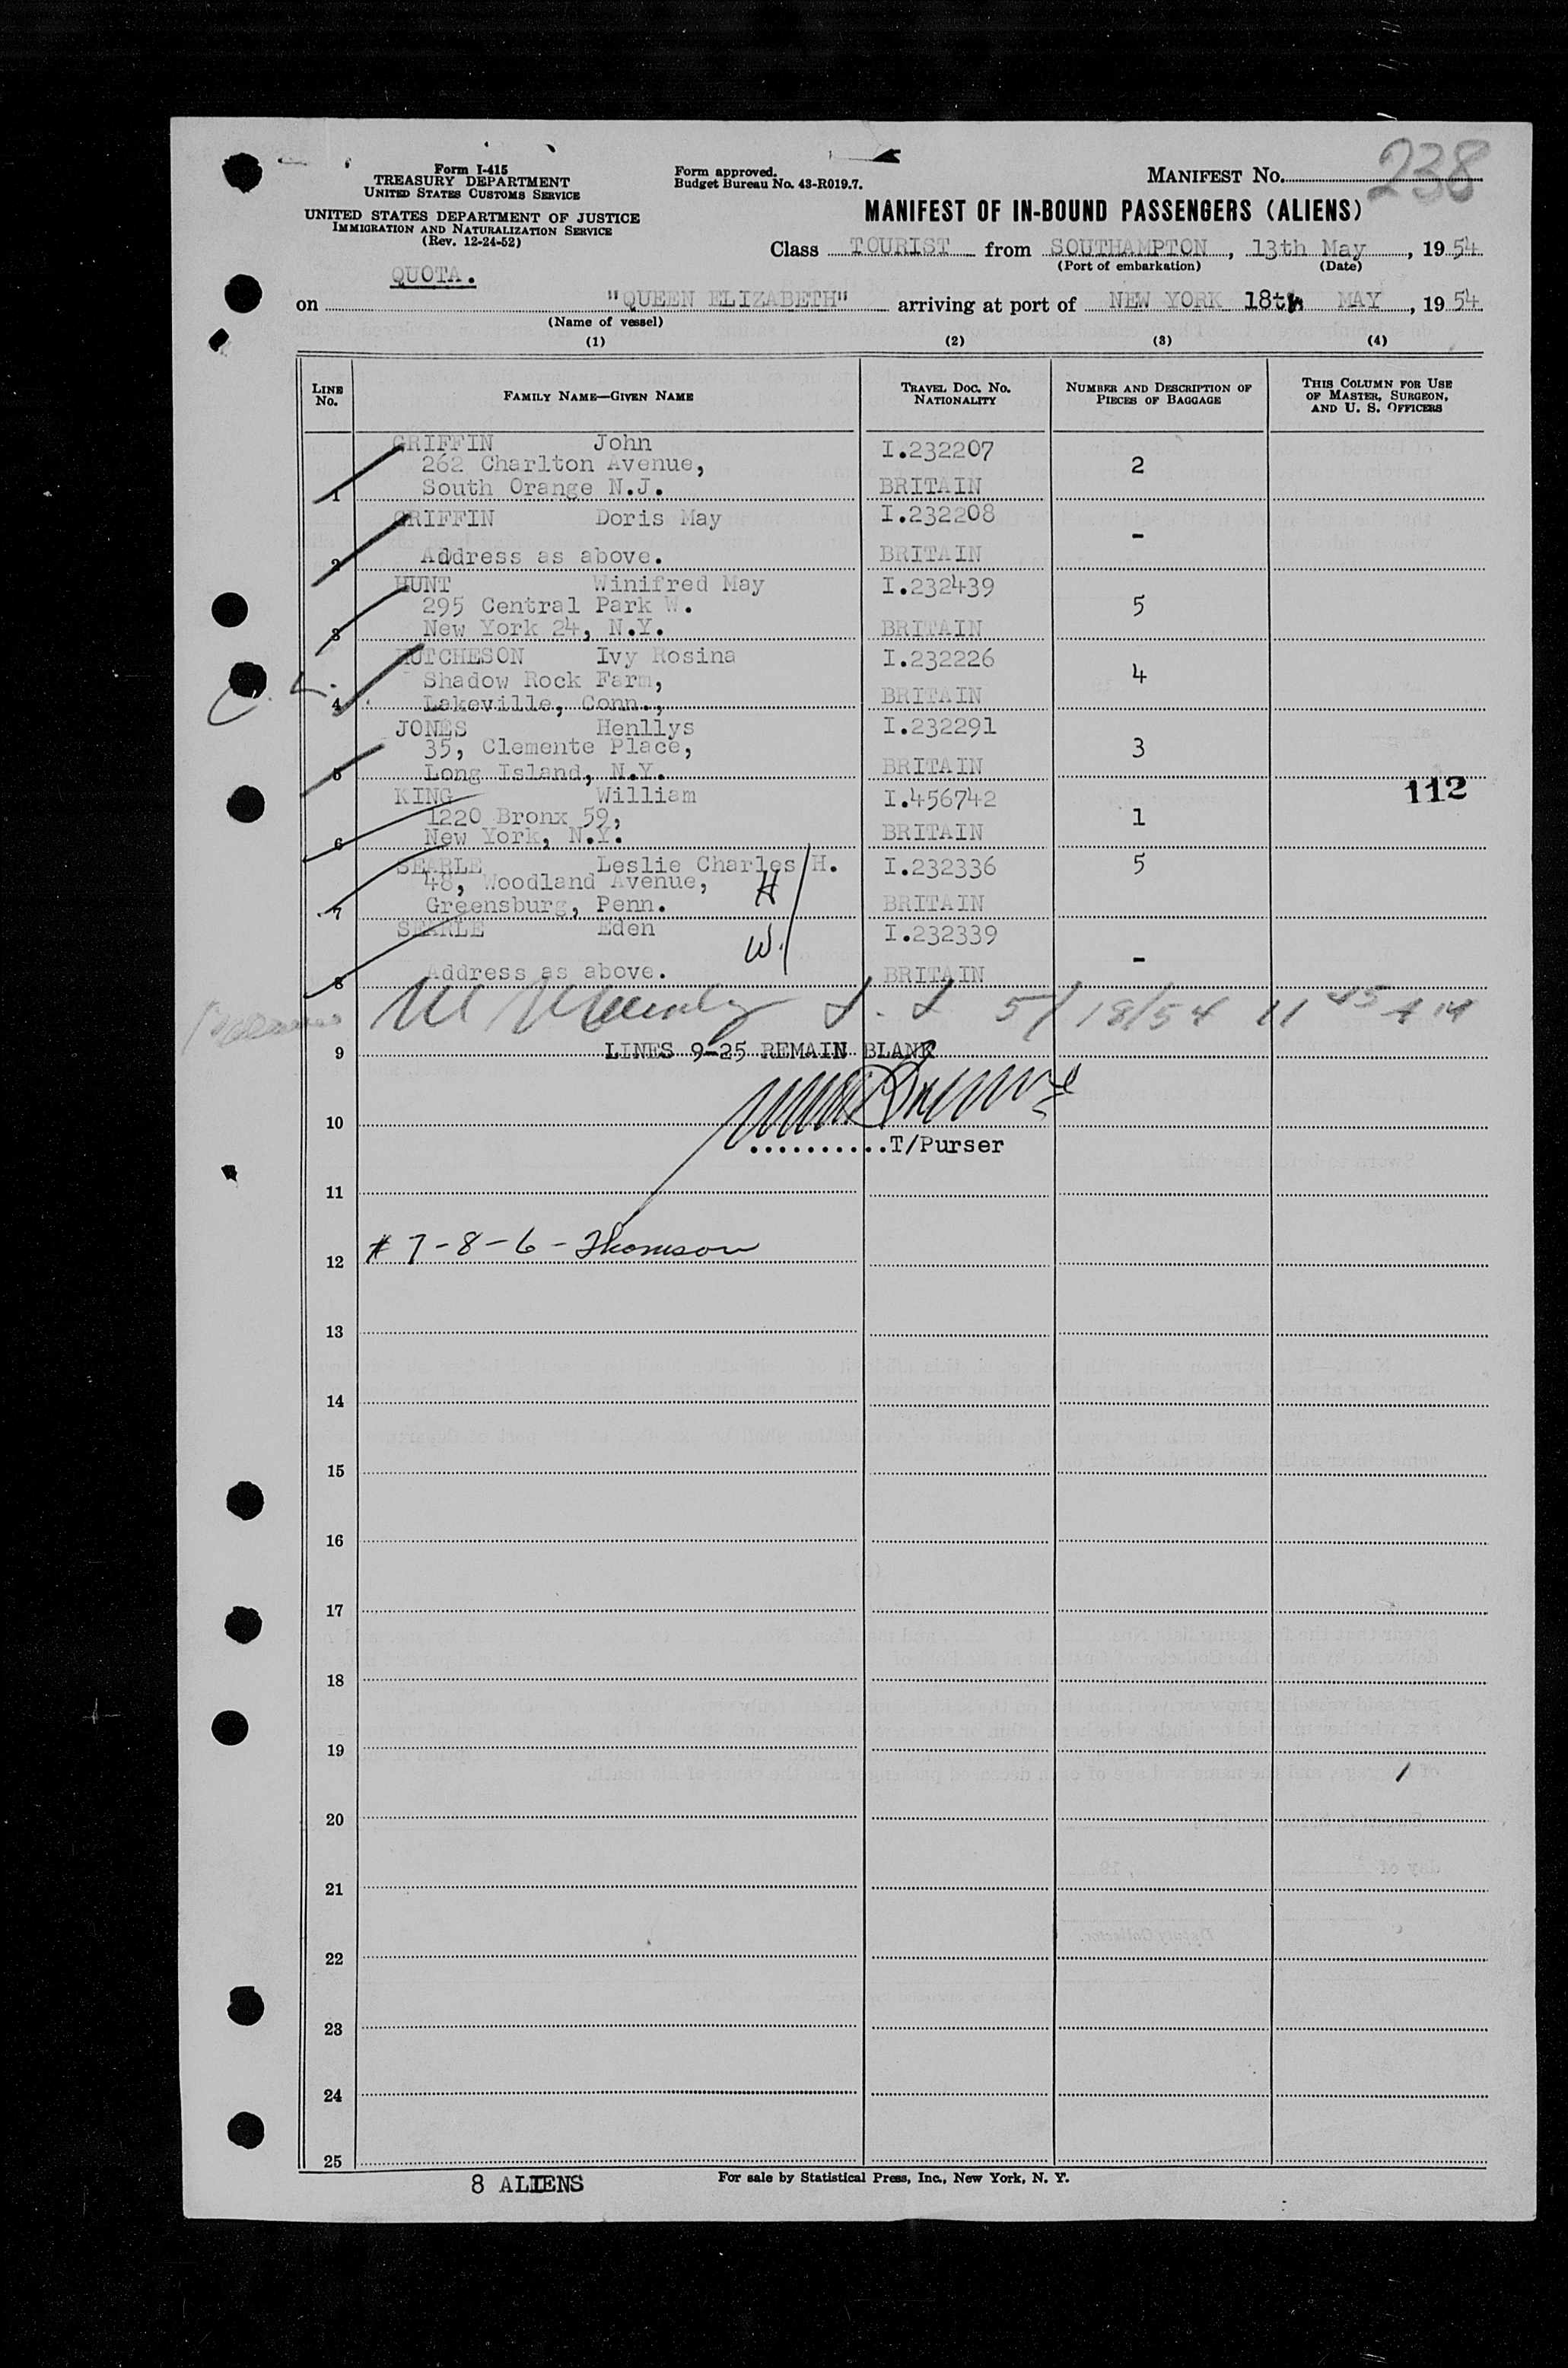 238
Form I-415
TREASURY DEPARTMENT
UNITED STATES CUSTOMS SERVICE
UNITED STATES DEPARTMENT OF JUSTICE
IMMIGRATION AND NATURALIZATION SERVICE
(Rev. 12-24-52)
Form approved.
Budget Bureau No. 43-R019.7.
MANIFEST NO.
MANIFEST OF IN-BOUND PASSENGERS (ALIENS)
Class TOURIST from SOUTHAMPTON, 13th May, 1954
(Port of embarkation) (Date)
QUOTA.
on "QUEEN ELIZABETH" arriving at port of NEW YORK 18th MAY, 1954
(Name of vessel)
(1) (2) (3) (4)
LINE NO. FAMILY NAME—GIVEN NAME TRAVEL DOC. NO. NATIONALITY NUMBER AND DESCRIPTION OF PIECES OF BAGGAGE THIS COLUMN FOR USE OF MASTER, SURGEON, AND U. S. OFFICERS
GRIFFIN John I.232207
262 Charlton Avenue, 2
1 South Orange N.J. BRITAIN
GRIFFIN Doris May I.232208
-
2 Address as above. BRITAIN
HUNT Winifred May I.232439
295 Central Park W. 5
3 New York 24, N.Y. BRITAIN
HUTCHESON Ivy Rosina I.232226
Shadow Rock Farm, 4
4 Lakeville, Conn., BRITAIN
JONES Henllys I.232291
35, Clemente Place, 3
5 Long Island, N.Y. BRITAIN
KING William I.456742 112
1220 Bronx 59, 1
6 New York, N.Y. BRITAIN
SEARLE Leslie Charles H. I.232336 5
48, Woodland Avenue, H
7 Greensburg, Penn. BRITAIN
SEARLE Eden I.232339
W.
8 Address as above. BRITAIN -
5/18/54 11 45 AM
9 LINES 9-25 REMAIN BLANK
10
..........T/Purser
11
12 # 7-8-6- Thomson
13
14
15
16
17
18
19
20
21
22
23
24
25
8 ALIENS For sale by Statistical Press, Inc., New York, N. Y.